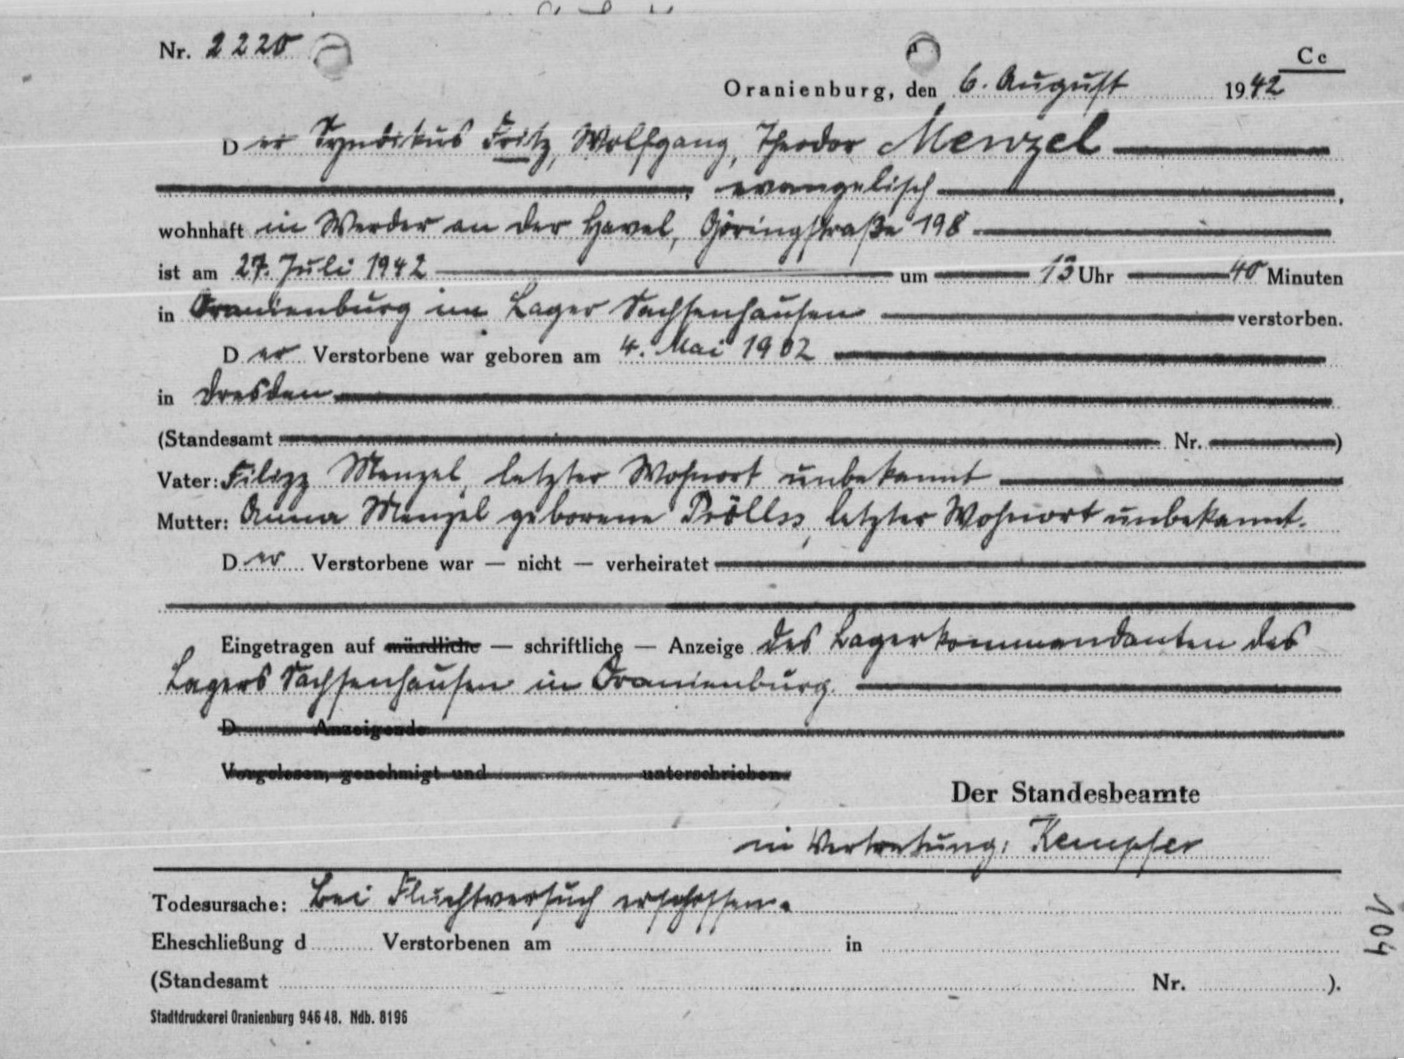 Nr. 2220
C c
Oranienburg, den 6. August 1942
Der Syndikus Fritz, Wolfgang, Theodor Menzel
evangelisch
wohnhaft in Werder an der Havel, Göringstraße 198
ist am 27. Juli 1942 um 13 Uhr 40 Minuten
in Oranienburg im Lager Sachsenhausen verstorben.
Der Verstorbene war geboren am 4. Mai 1902
in Dresden
(Standesamt Nr. )
Vater: Filipp Menzel, letzter Wohnort unbekannt
Mutter: Anna Menzel geborene Prölß, letzter Wohnort unbekannt.
Der Verstorbene war — nicht — verheiratet
Eingetragen auf mündliche — schriftliche — Anzeige des Lagerkommandanten des
Lagers Sachsenhausen in Oranienburg.
D Anzeigende
Vorgelesen, genehmigt und unterschrieben.
Der Standesbeamte
in Vertretung: Kempfer
Todesursache: Bei Fluchtversuch erschossen.
Eheschließung d Verstorbenen am in
(Standesamt Nr. ).
Stadtdruckerei Oranienburg 946 48. Ndb. 8196
104